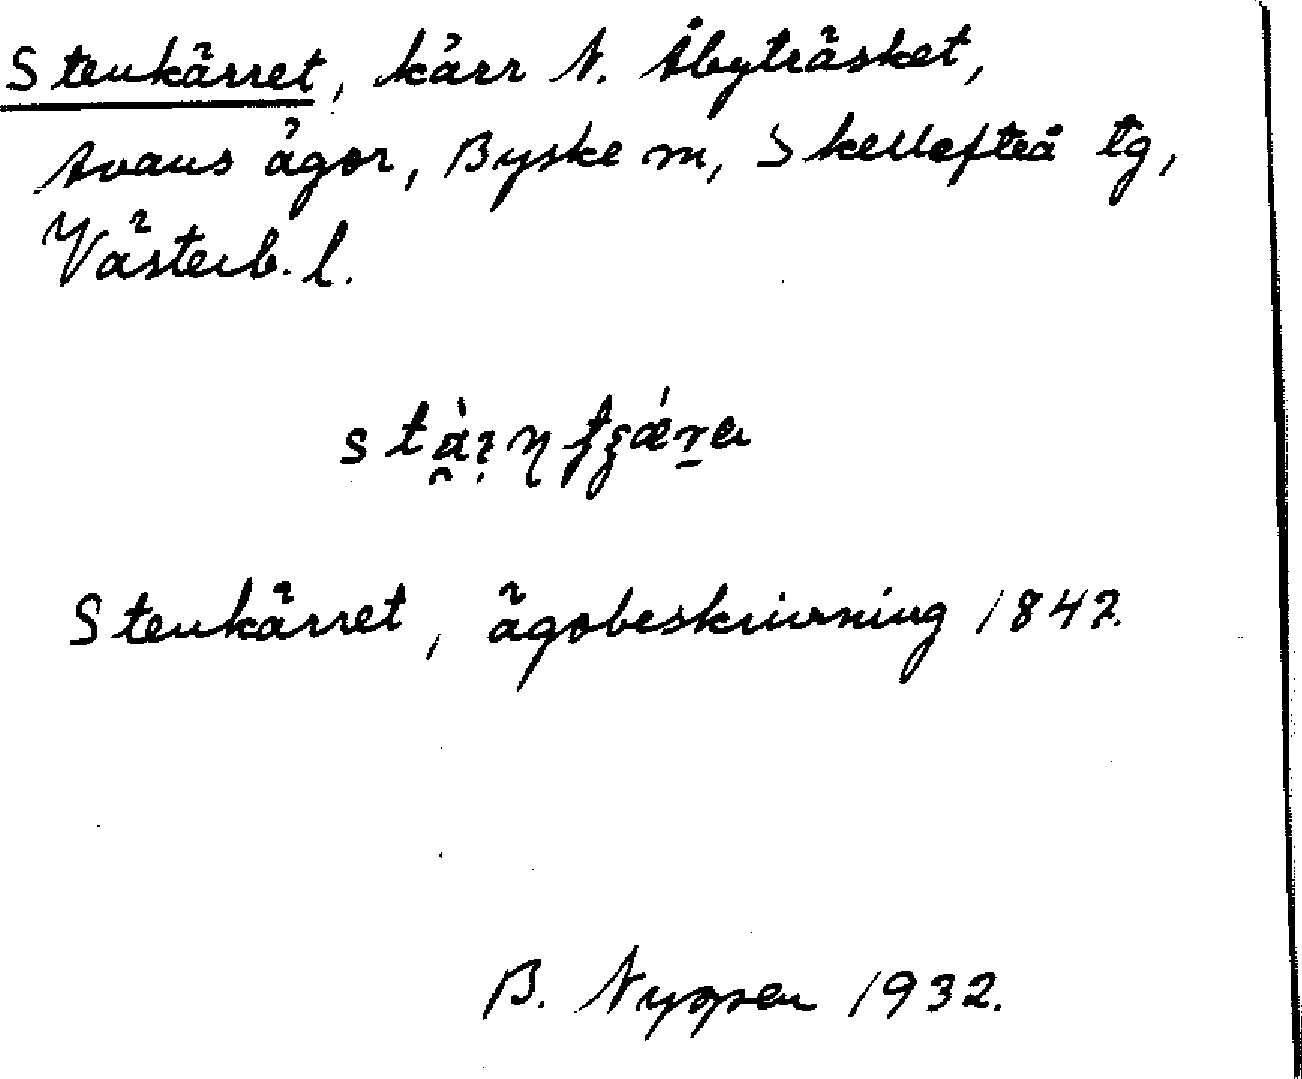 Stenkärret, kärr N. Åbyträsket,
Avans ägor, Byske sn, Skellefteå tg,
Västerb. l.
Stenkärret, ägobeskrivning 1842.
B. 1932.